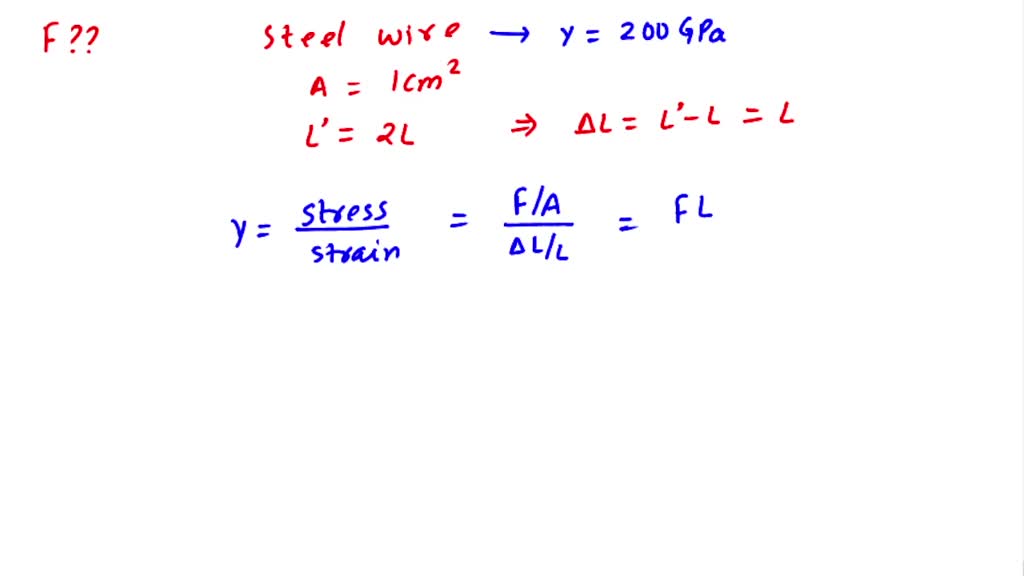 F ?? steel wire → Y = 200 GPa
A = 1 cm²
L' = 2L ⇒ ΔL = L' - L = L
Y = stress / strain = F/A / ΔL/L = FL